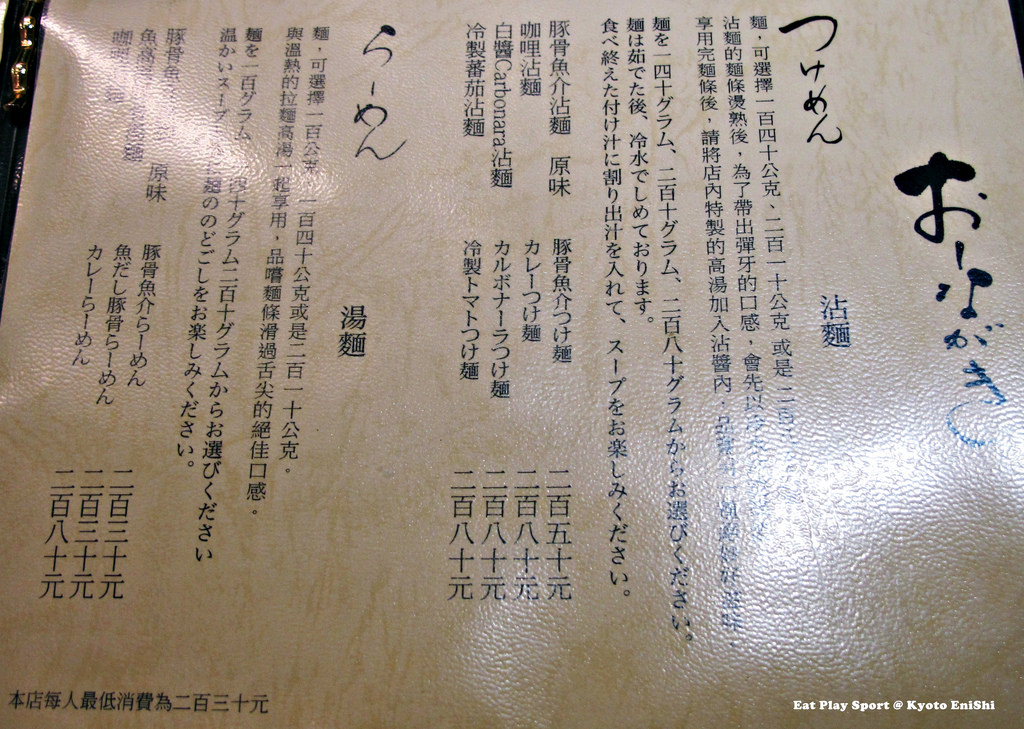 おしながき
つけめん 沾麵
麵，可選擇一百四十公克、二百一十公克 或是二百
沾麵的麵條燙熟後，為了帶出彈牙的口感，會先以
享用完麵條後，請將店內特製的高湯加入沾醬內，
麺を一四十グラム、二百十グラム、二百八十グラムからお選びください。
麺は茹でた後、冷水でしめております。
食べ終えた付け汁に割り出汁を入れて、スープをお楽しみください。
豚骨魚介沾麵 原味 豚骨魚介つけ麺 二百五十元
咖哩沾麵 カレーつけ麺 二百八十元
白醬Carbonara沾麵 カルボナーラつけ麺 二百八十元
冷製蕃茄沾麵 冷製トマトつけ麺 二百八十元
らーめん 湯麵
麵，可選擇一百公克，一百四十公克或是二百一十公克。
與溫熱的拉麵高湯一起享用，品嚐麵條滑過舌尖的絕佳口感。
麺を一百グラム 四十グラム二百十グラムからお選びください
温かいスープ 麺ののどごしをお楽しみください。
豚骨魚 原味 豚骨魚介らーめん 二百三十元
魚高 魚だし豚骨らーめん 二百三十元
咖哩 麵 カレーらーめん 二百八十元
本店每人最低消費為二百三十元
Eat Play Sport @ Kyoto EniShi